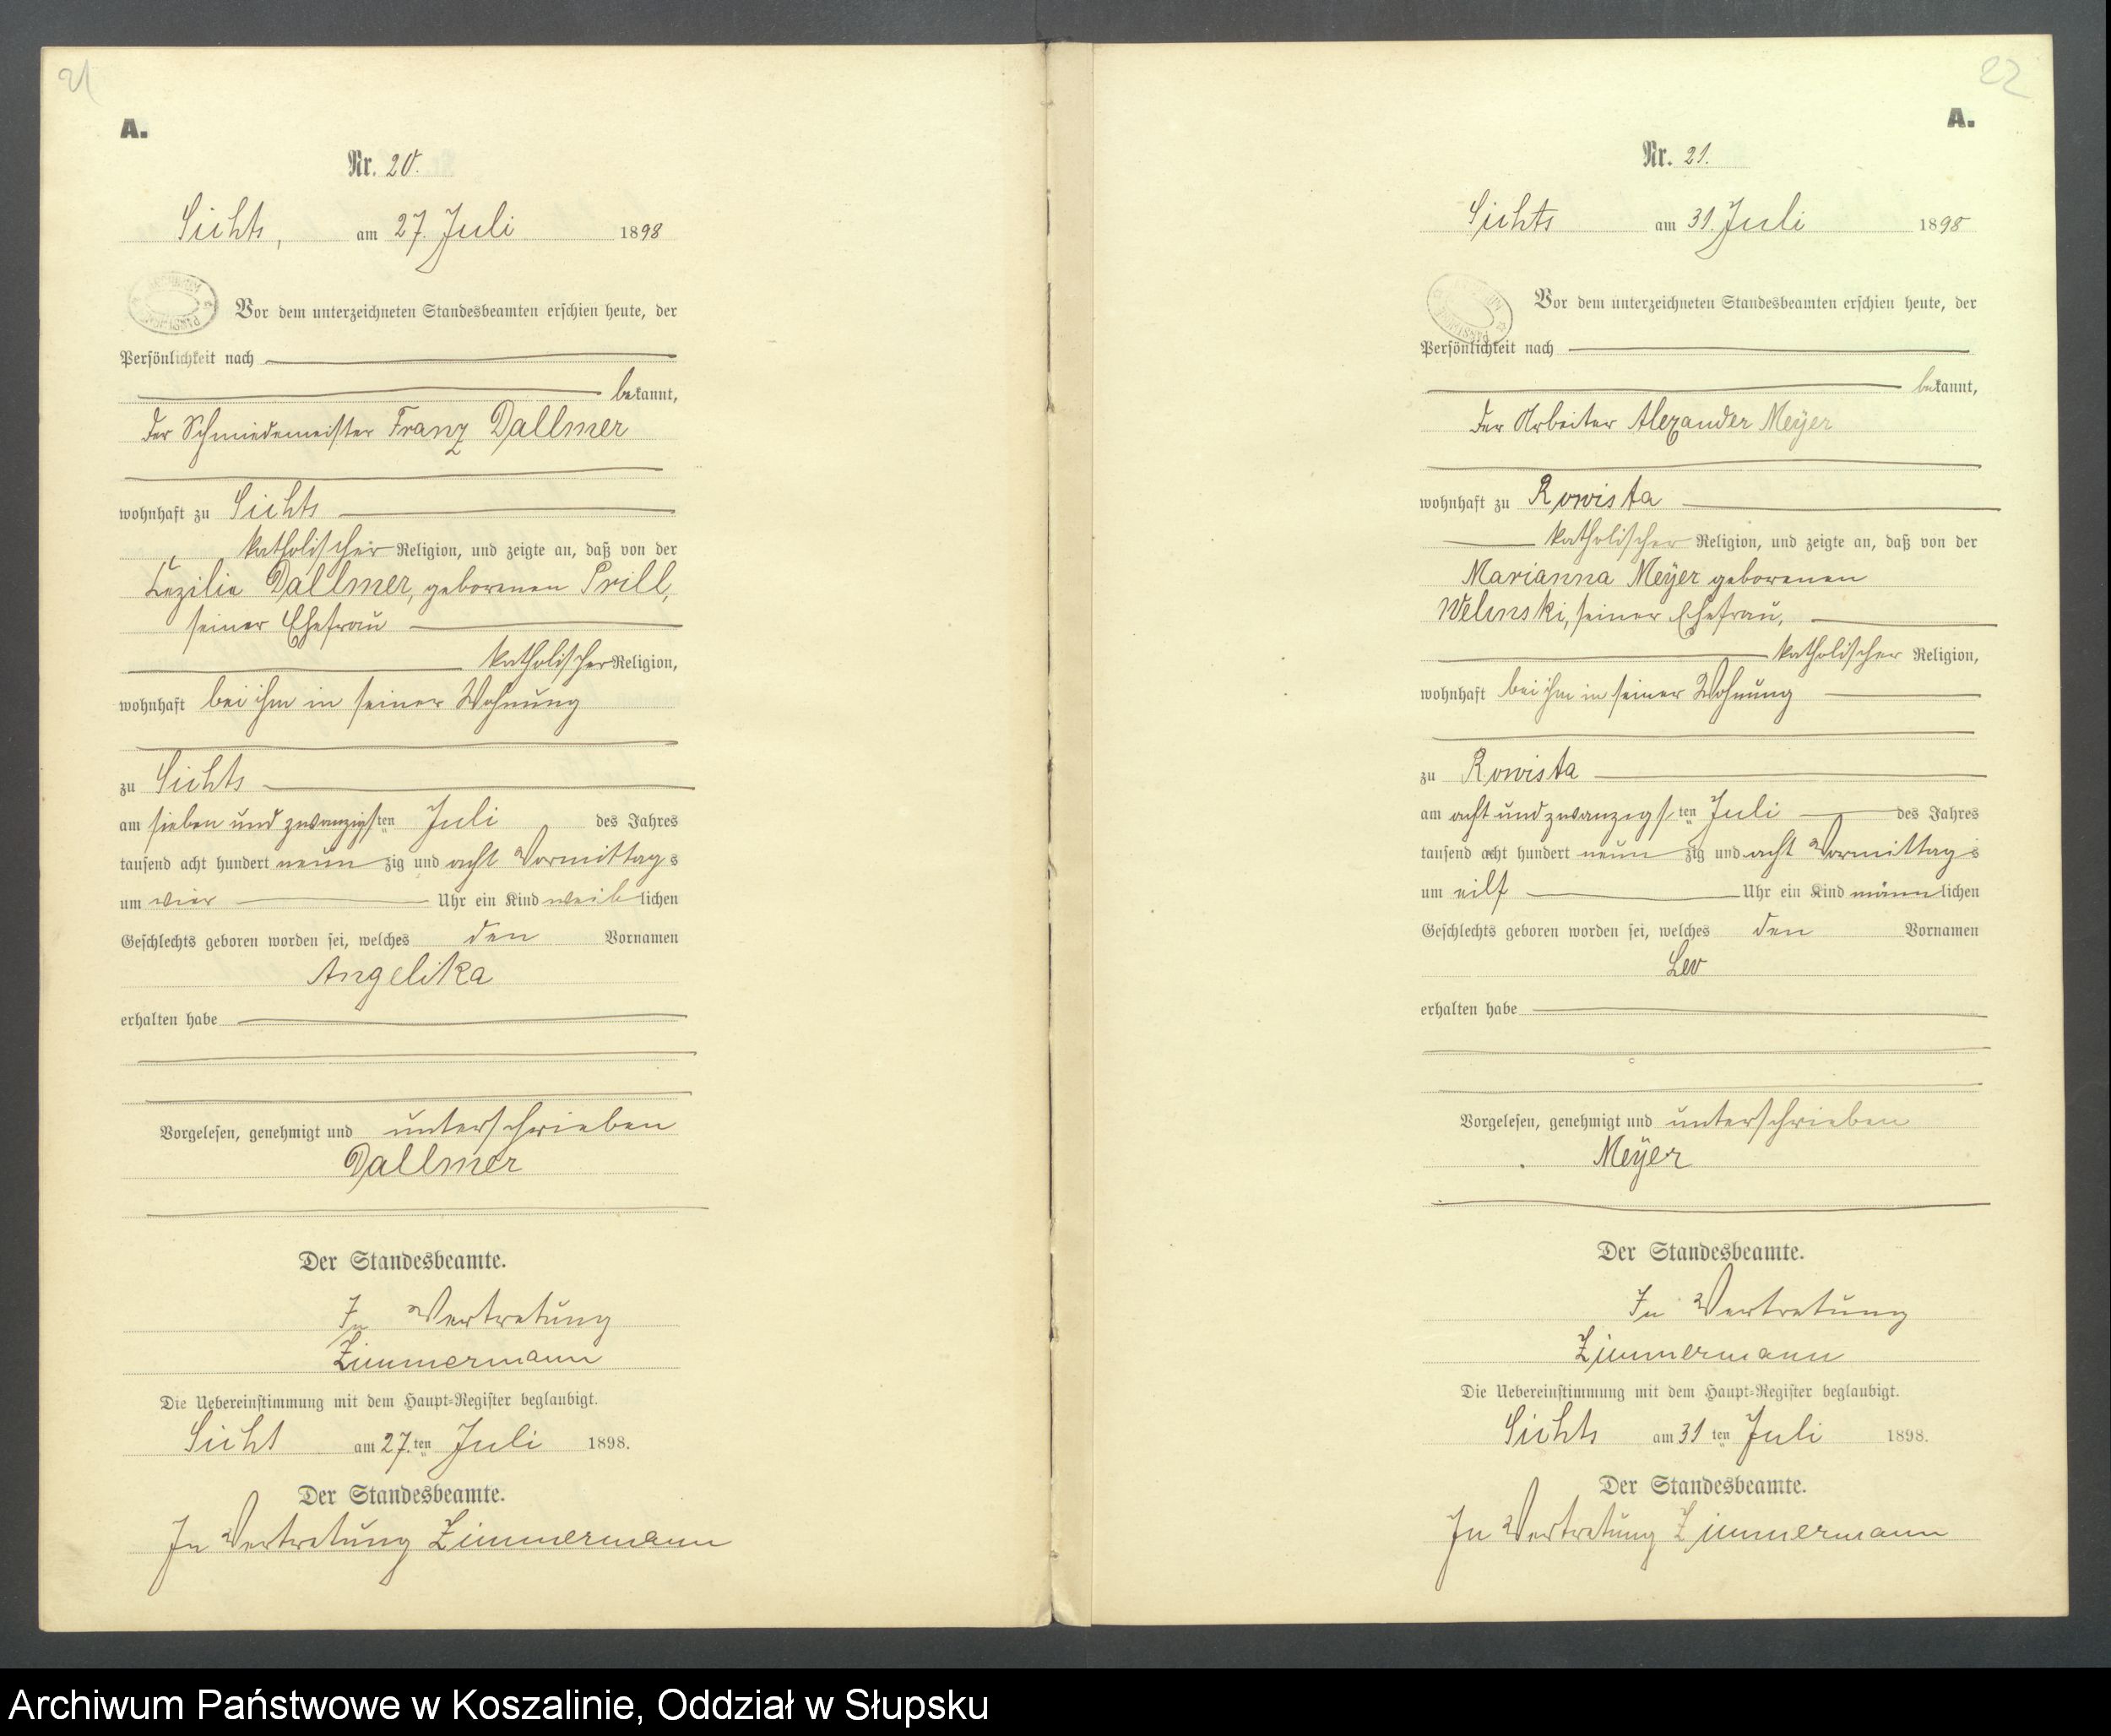 21
A.
Nr. 20.
Sichts, am 27. Juli 1898
Vor dem unterzeichneten Standesbeamten erschien heute, der
Persönlichkeit nach
bekannt,
der Schmiedemeister Franz Dallmer
wohnhaft zu Sichts
katholischer Religion, und zeigte an, daß von der
Cezilie Dallmer, geborenen Prill,
seiner Ehefrau
katholischer Religion,
wohnhaft bei ihm in seiner Wohnung
zu Sichts
am sieben und zwanzigsten Juli des Jahres
tausend acht hundert neun zig und acht Vormittags
um vier Uhr ein Kind weiblichen
Geschlechts geboren worden sei, welches den Vornamen
Angelika
erhalten habe
Vorgelesen, genehmigt und unterschrieben
Dallmer
Der Standesbeamte.
In Vertretung
Zimmermann
Die Uebereinstimmung mit dem Haupt-Register beglaubigt.
Sicht am 27.ten Juli 1898.
Der Standesbeamte.
In Vertretung Zimmermann
22
A.
Nr. 21.
Sichts am 31. Juli 1898
Vor dem unterzeichneten Standesbeamten erschien heute, der
Persönlichkeit nach
bekannt,
der Arbeiter Alexander Meÿer
wohnhaft zu Rowista
katholischer Religion, und zeigte an, daß von der
Marianna Meÿer geborenen
seiner Ehefrau,
katholischer Religion,
wohnhaft bei ihm in seiner Wohnung
zu Rowista
am acht und zwanzigsten Juli des Jahres
tausend acht hundert neun zig und acht Vormittags
um eilf Uhr ein Kind männlichen
Geschlechts geboren worden sei, welches den Vornamen
Leo
erhalten habe
Vorgelesen, genehmigt und unterschrieben
Meÿer
Der Standesbeamte.
In Vertretung
Zimmermann
Die Uebereinstimmung mit dem Haupt-Register beglaubigt.
Sichts am 31 ten Juli 1898.
Der Standesbeamte.
In Vertretung Zimmermann
Archiwum Państwowe w Koszalinie, Oddział w Słupsku